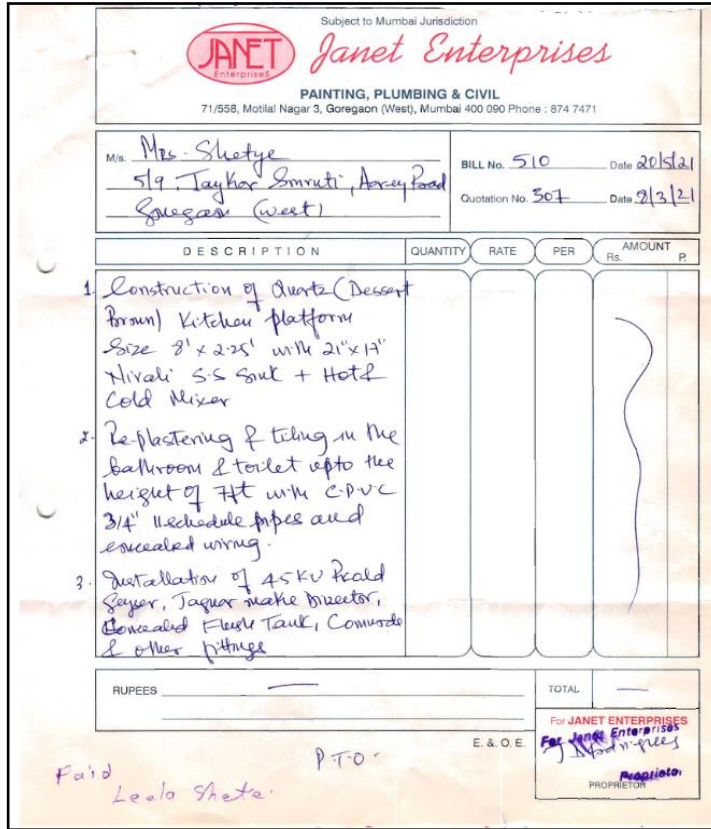 Subject to Mumbai Jurisdiction
JANET
Enterprises
Janet Enterprises
PAINTING, PLUMBING & CIVIL
71/558, Motilal Nagar 3, Goregaon (West), Mumbai 400 090 Phone : 874 7471
M/s. Mrs. Shetye
5/9, Taykar Smruti, Aarey Road
Goregaon (west)
BILL No. 510 Date 20/5/21
Quotation No. 307 Date 8/3/21
DESCRIPTION QUANTITY RATE PER AMOUNT
Rs. P.
1. Construction of Quartz (Dessert
Brown) Kitchen platform
Size 8' x 2.25' with 21" x 17"
Nirali S.S Sink + Hot &
Cold Mixer
2. Re-plastering & tiling in the
bathroom & toilet upto the
height of 7ft with C.P.V.C
3/4" schedule pipes and
concealed wiring.
3. Installation of
Geyser, Jaguar make Divertor,
Concealed Flush Tank, Commode
& other fittings
RUPEES
TOTAL
E. & O. E.
For JANET ENTERPRISES
For Janet Enterprises
Proprietor
PROPRIETOR
P.T.O.
Paid
Leela